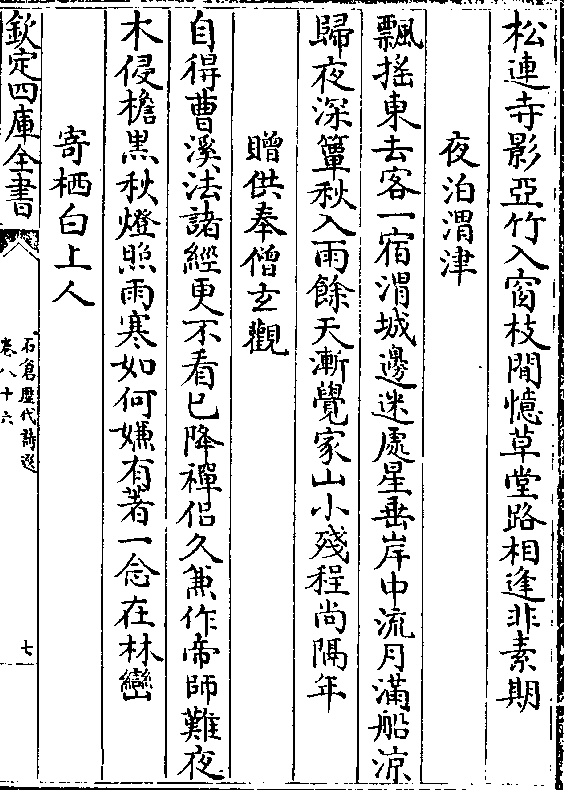 松連寺影亞竹入窗枝閒憶草堂路相逢非素期
夜泊渭津
飄搖東去客一宿渭城邊迷處星垂岸中流月滿船涼
歸夜深簟秋入雨餘天漸覺家山小殘程尚隔年
贈供奉僧玄觀
自得曹溪法諸經更不看已降禪侣久兼作帝師難夜
木侵檐黒秋燈照雨寒如何嫌有著一念在林巒
寄栖白上人
欽定四庫全書
石倉歷代詩選
卷八十六
七